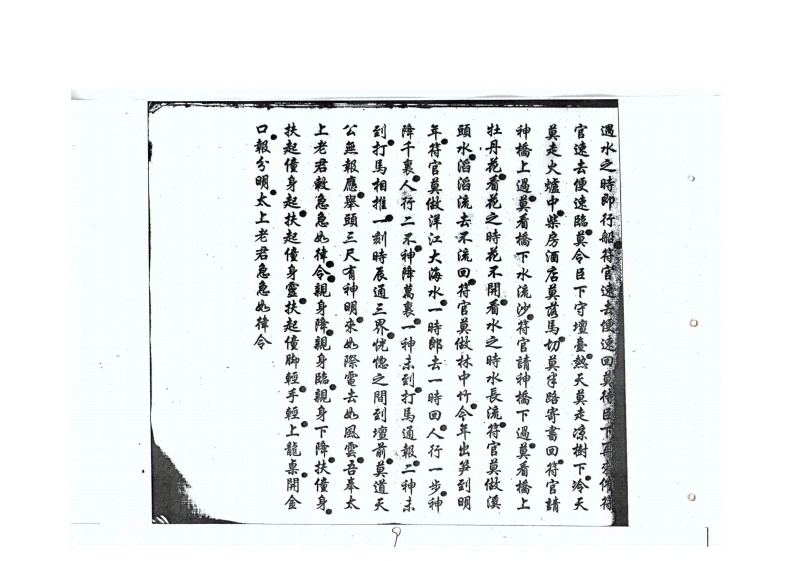 遇水之時即行船符官速去便速回莫待臣下再來催符
官速去便速臨莫令臣下守壇臺熱天莫走凉樹下冷天
莫走火爐中柴房酒店莫落馬切莫半路寄書回符官請
神橋上過莫看橋下水流沙符官請神橋下過莫看橋上
牡丹花看花之時花不開看水之時水長流符官莫做溪
頭水滔滔流去不流回符官莫做林中竹今年出笋到明
年符官莫做洋江大海水一時郎去一時回人行一步神
降千裏人行二不神降萬裏一神未到打馬通報二神未
到打馬相推一刻時辰通三界恍惚之間到壇前莫道天
公無報應舉頭三尺有神明來如際電去如風雲吾奉太
上老君敕急急如律令親身降親身臨親身下降扶僮身
扶起僮身起扶起僮身靈扶起僮脚輕手輕上龍桌開金
口報分明太上老君急急如律令
9